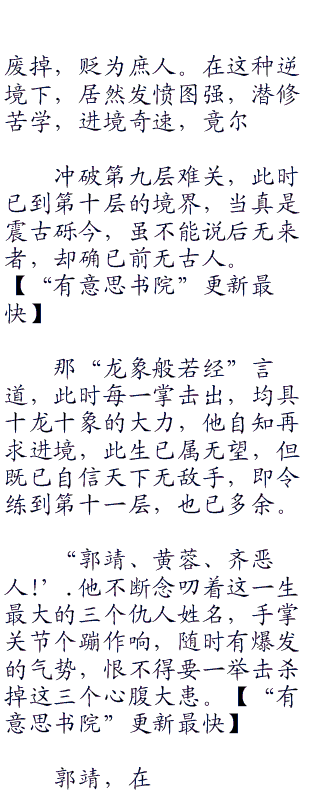 废掉，贬为庶人。在这种逆
境下，居然发愤图强，潜修
苦学，进境奇速，竟尔
冲破第九层难关，此时
已到第十层的境界，当真是
震古砾今，虽不能说后无来
者，却确已前无古人。
【“有意思书院”更新最
快】
那“龙象般若经”言
道，此时每一掌击出，均具
十龙十象的大力，他自知再
求进境，此生已属无望，但
既已自信天下无敌手，即令
练到第十一层，也已多余。
“郭靖、黄蓉、齐恶
人!’.他不断念叨着这一生
最大的三个仇人姓名，手掌
关节个蹦作响，随时有爆发
的气势，恨不得要一举击杀
掉这三个心腹大患。【“有
意思书院”更新最快】
郭靖，在